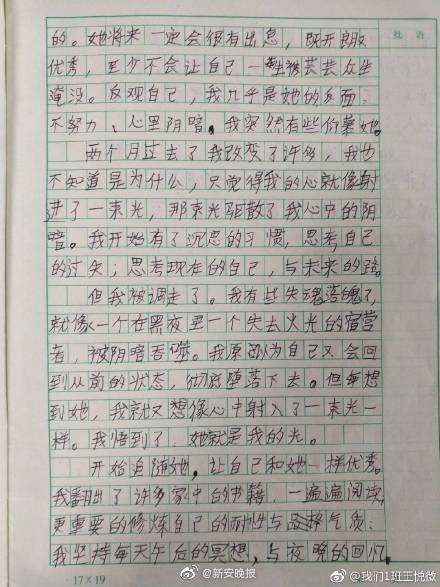 批语
的。她将来一定会很有出息，既开朗又
优秀，至少不会让自己一生被芸芸众生
淹没。反观自己，我几乎是她的反面：
不努力、心里阴暗。我突然有些仰慕她。
两个月过去了我改变了许多，我也
不知道是为什么，只觉得我的心就像射
进了一束光，那束光驱散了我心中的阴
暗。我开始有了沉思的习惯，思考自己
的过失；思考现在的自己，与未来的路。
但我被调走了。我有些失魂落魄了，
就像一个在黑夜里一个失去火光的宿营
者，被阴暗吞噬。我原以为自己又会回
到从前的状态，彻底堕落下去。但每想
到她，我就又想像心中射入了一束光一
样。我悟到了，她就是我的光。
开始追随她，让自己和她一样优秀。
我翻出了许多家中的书籍，一遍遍阅读，
更重要的修炼自己的耐性与 气质：
我坚持每天午后的冥想，与夜晚的回忆，
17×19
@新安晚报
@我们1班王悦微